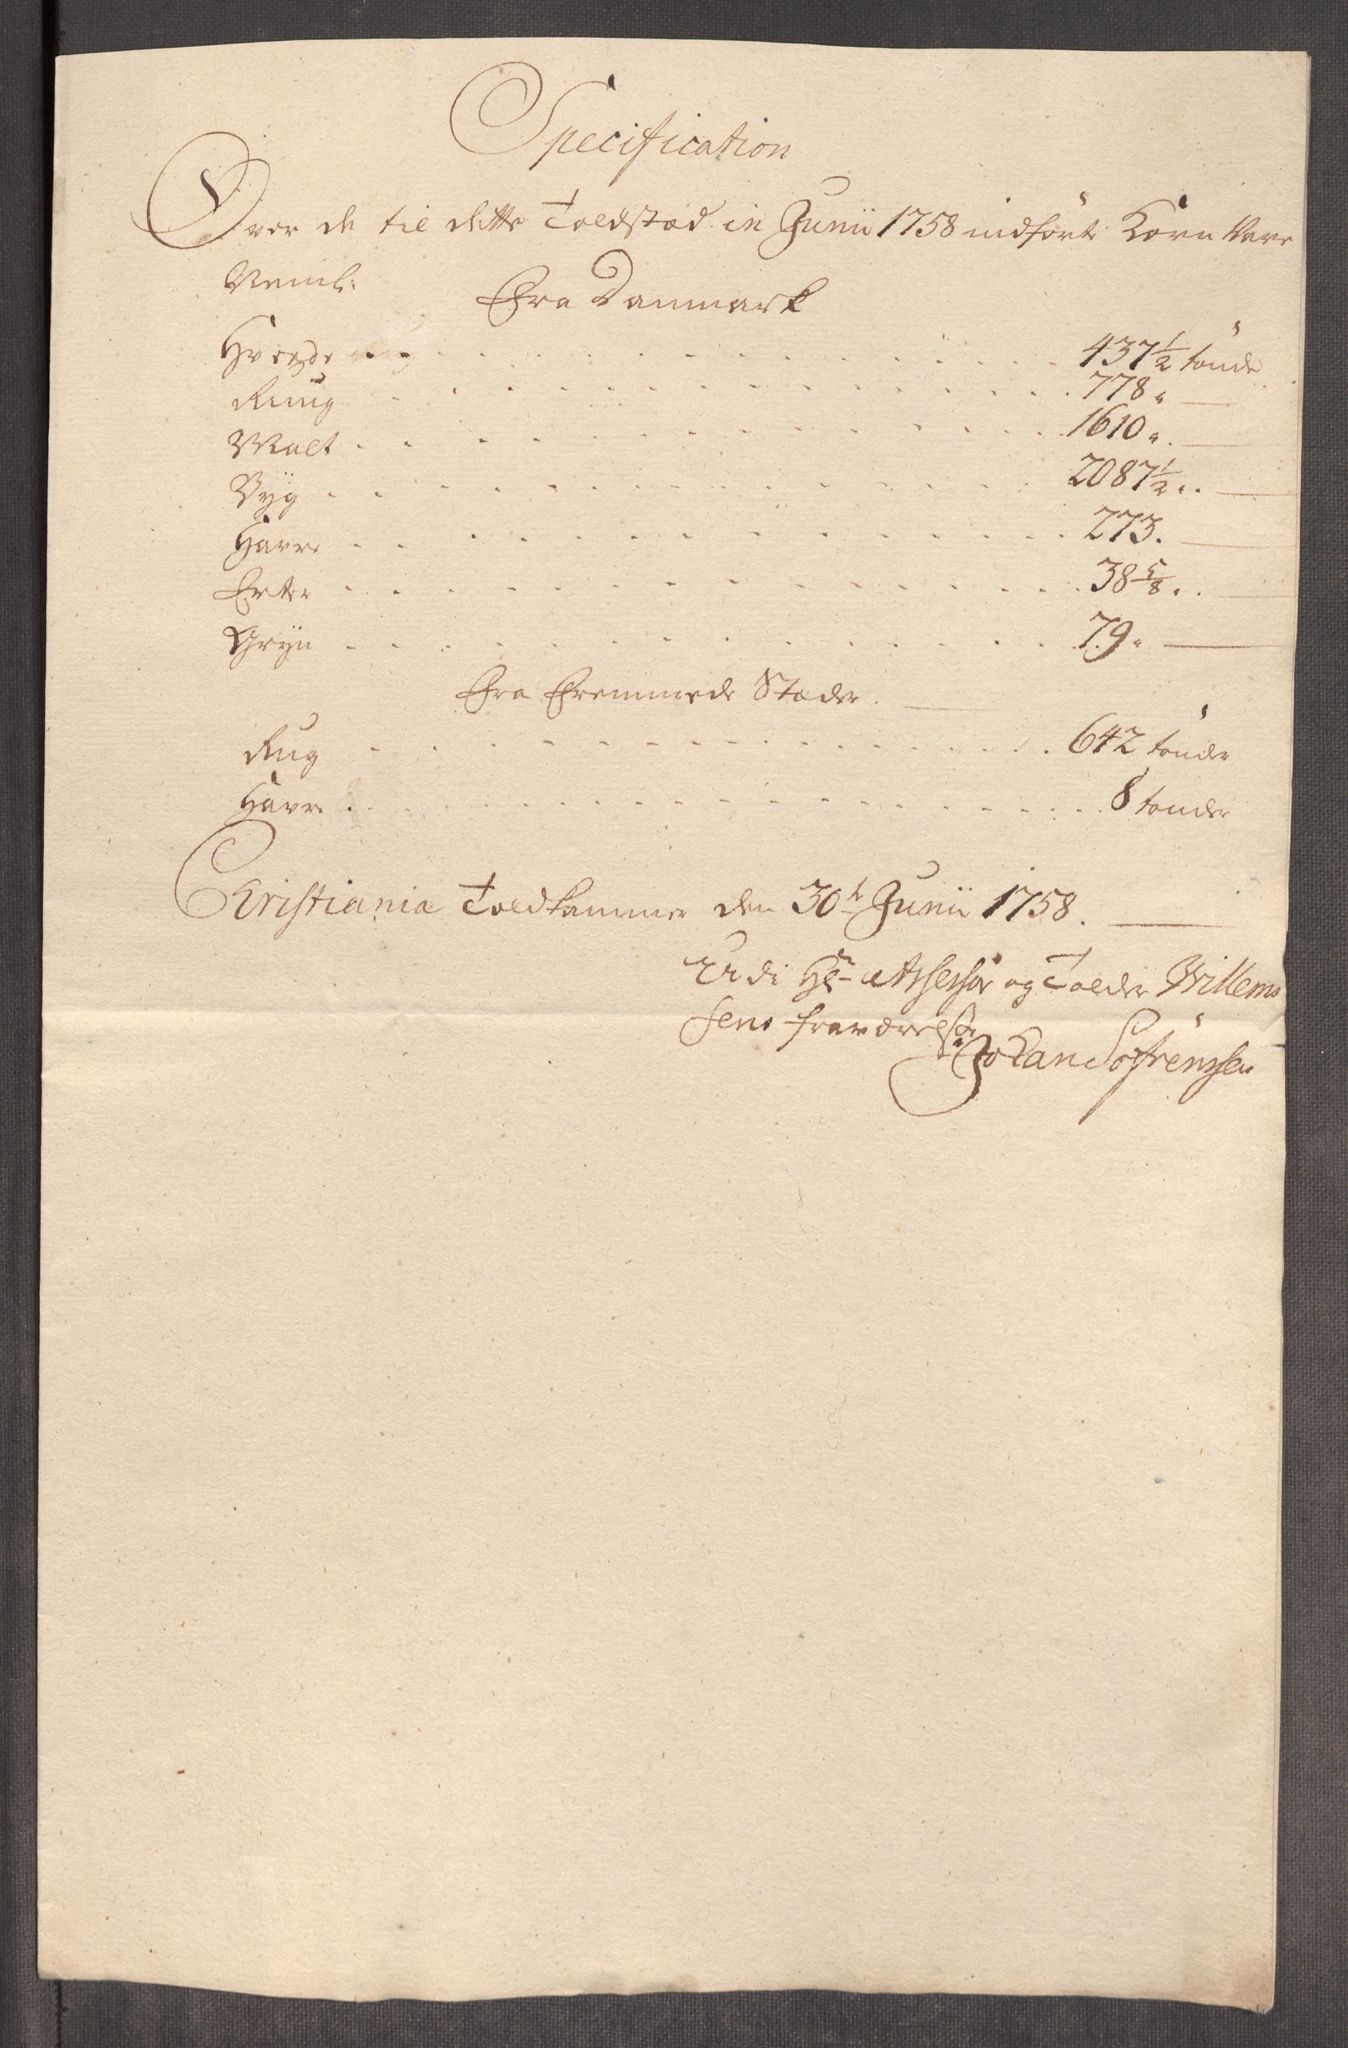 Specification
Over de til dette Toldstæd in Junii 1758 indförte Korn Vare
Neml:
Fra Danmark
Hvede 437 1/2 tönde
Ruug 778
Malt 1610
Byg 2087 1/2
Havre 273
Erter 38 5/8
Gryn 79
Fra Fremmede Stæder
Rug 642 tönder
Havre 8 tönder
Christiania Toldkammer den 30te Junii 1758.
Udi Hr Assessor og Tolder Willem
sens fraværelse
Johan Söfrenssen